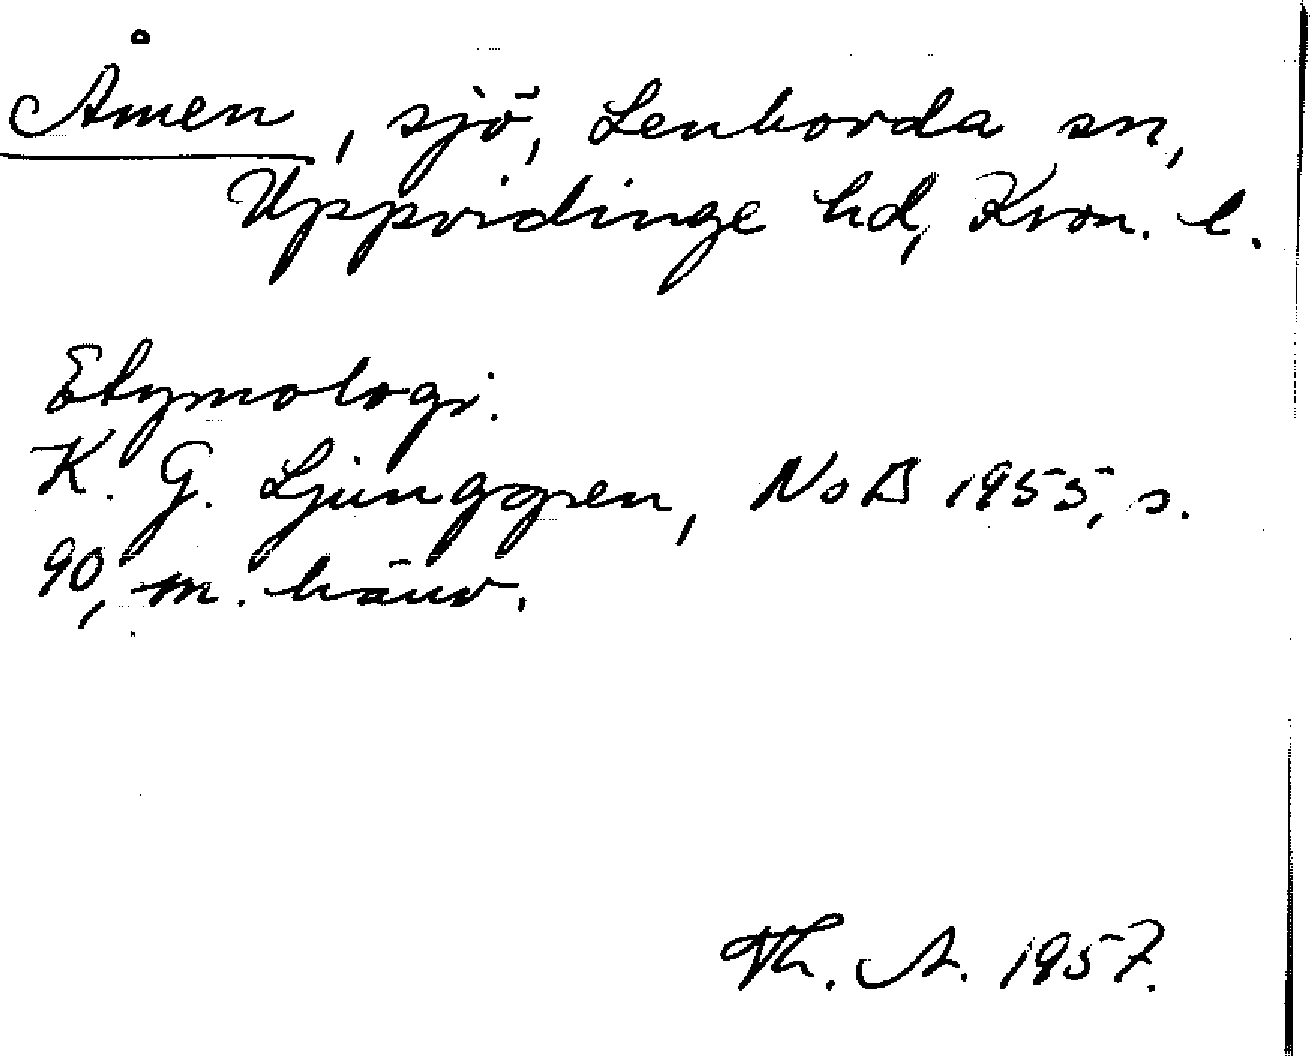 Åmen, sjö, Lenhovda sn,
Uppvidinge hd, Kron. l.
Etymologi.
K. G. Ljunggren, NoB 1955, s.
90, m. hänv.
Th. A. 1957.